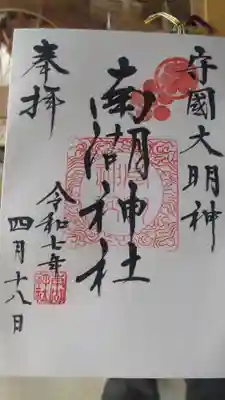 守國大明神
南湖神社
奉拝
令和七年
四月十八日